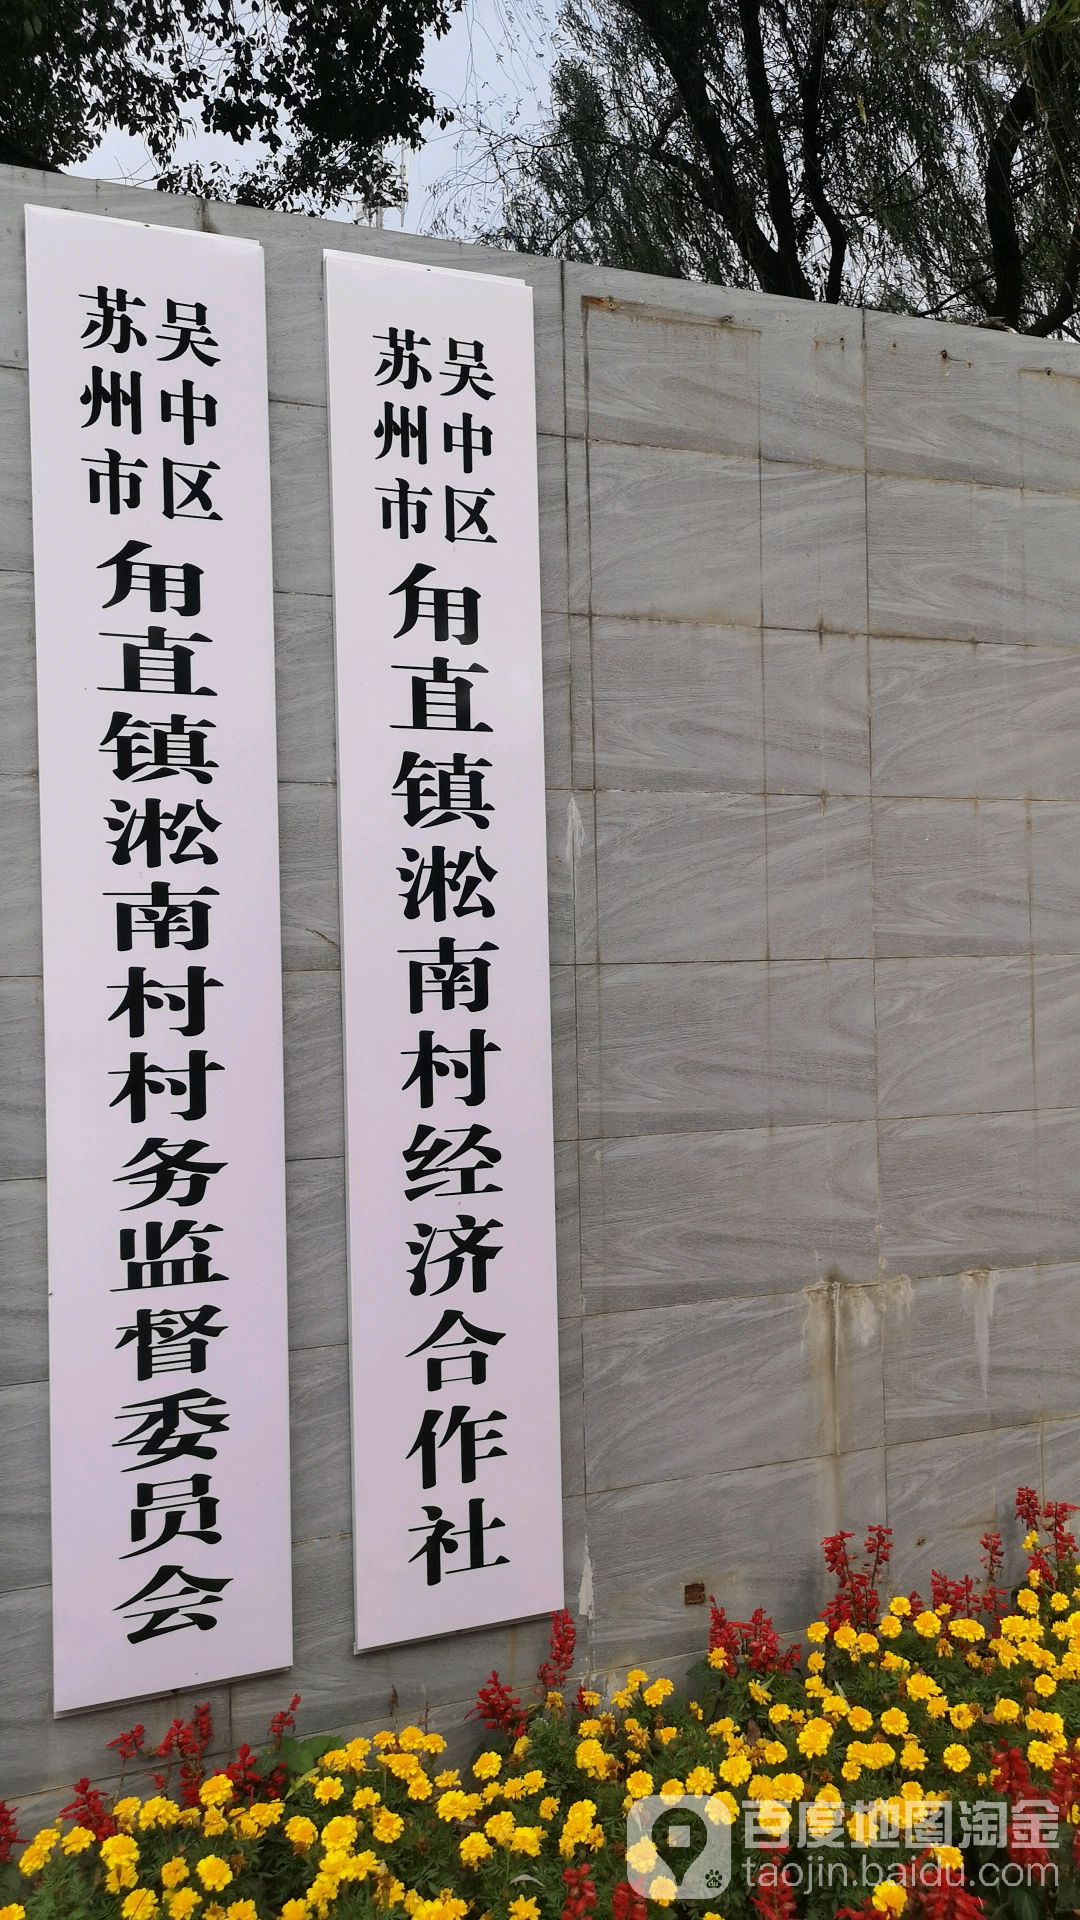 苏州市
吴中区
甪直镇淞南村村务监督委员会
苏州市
吴中区
甪直镇淞南村经济合作社
百度地图淘金
taojin.baidu.com